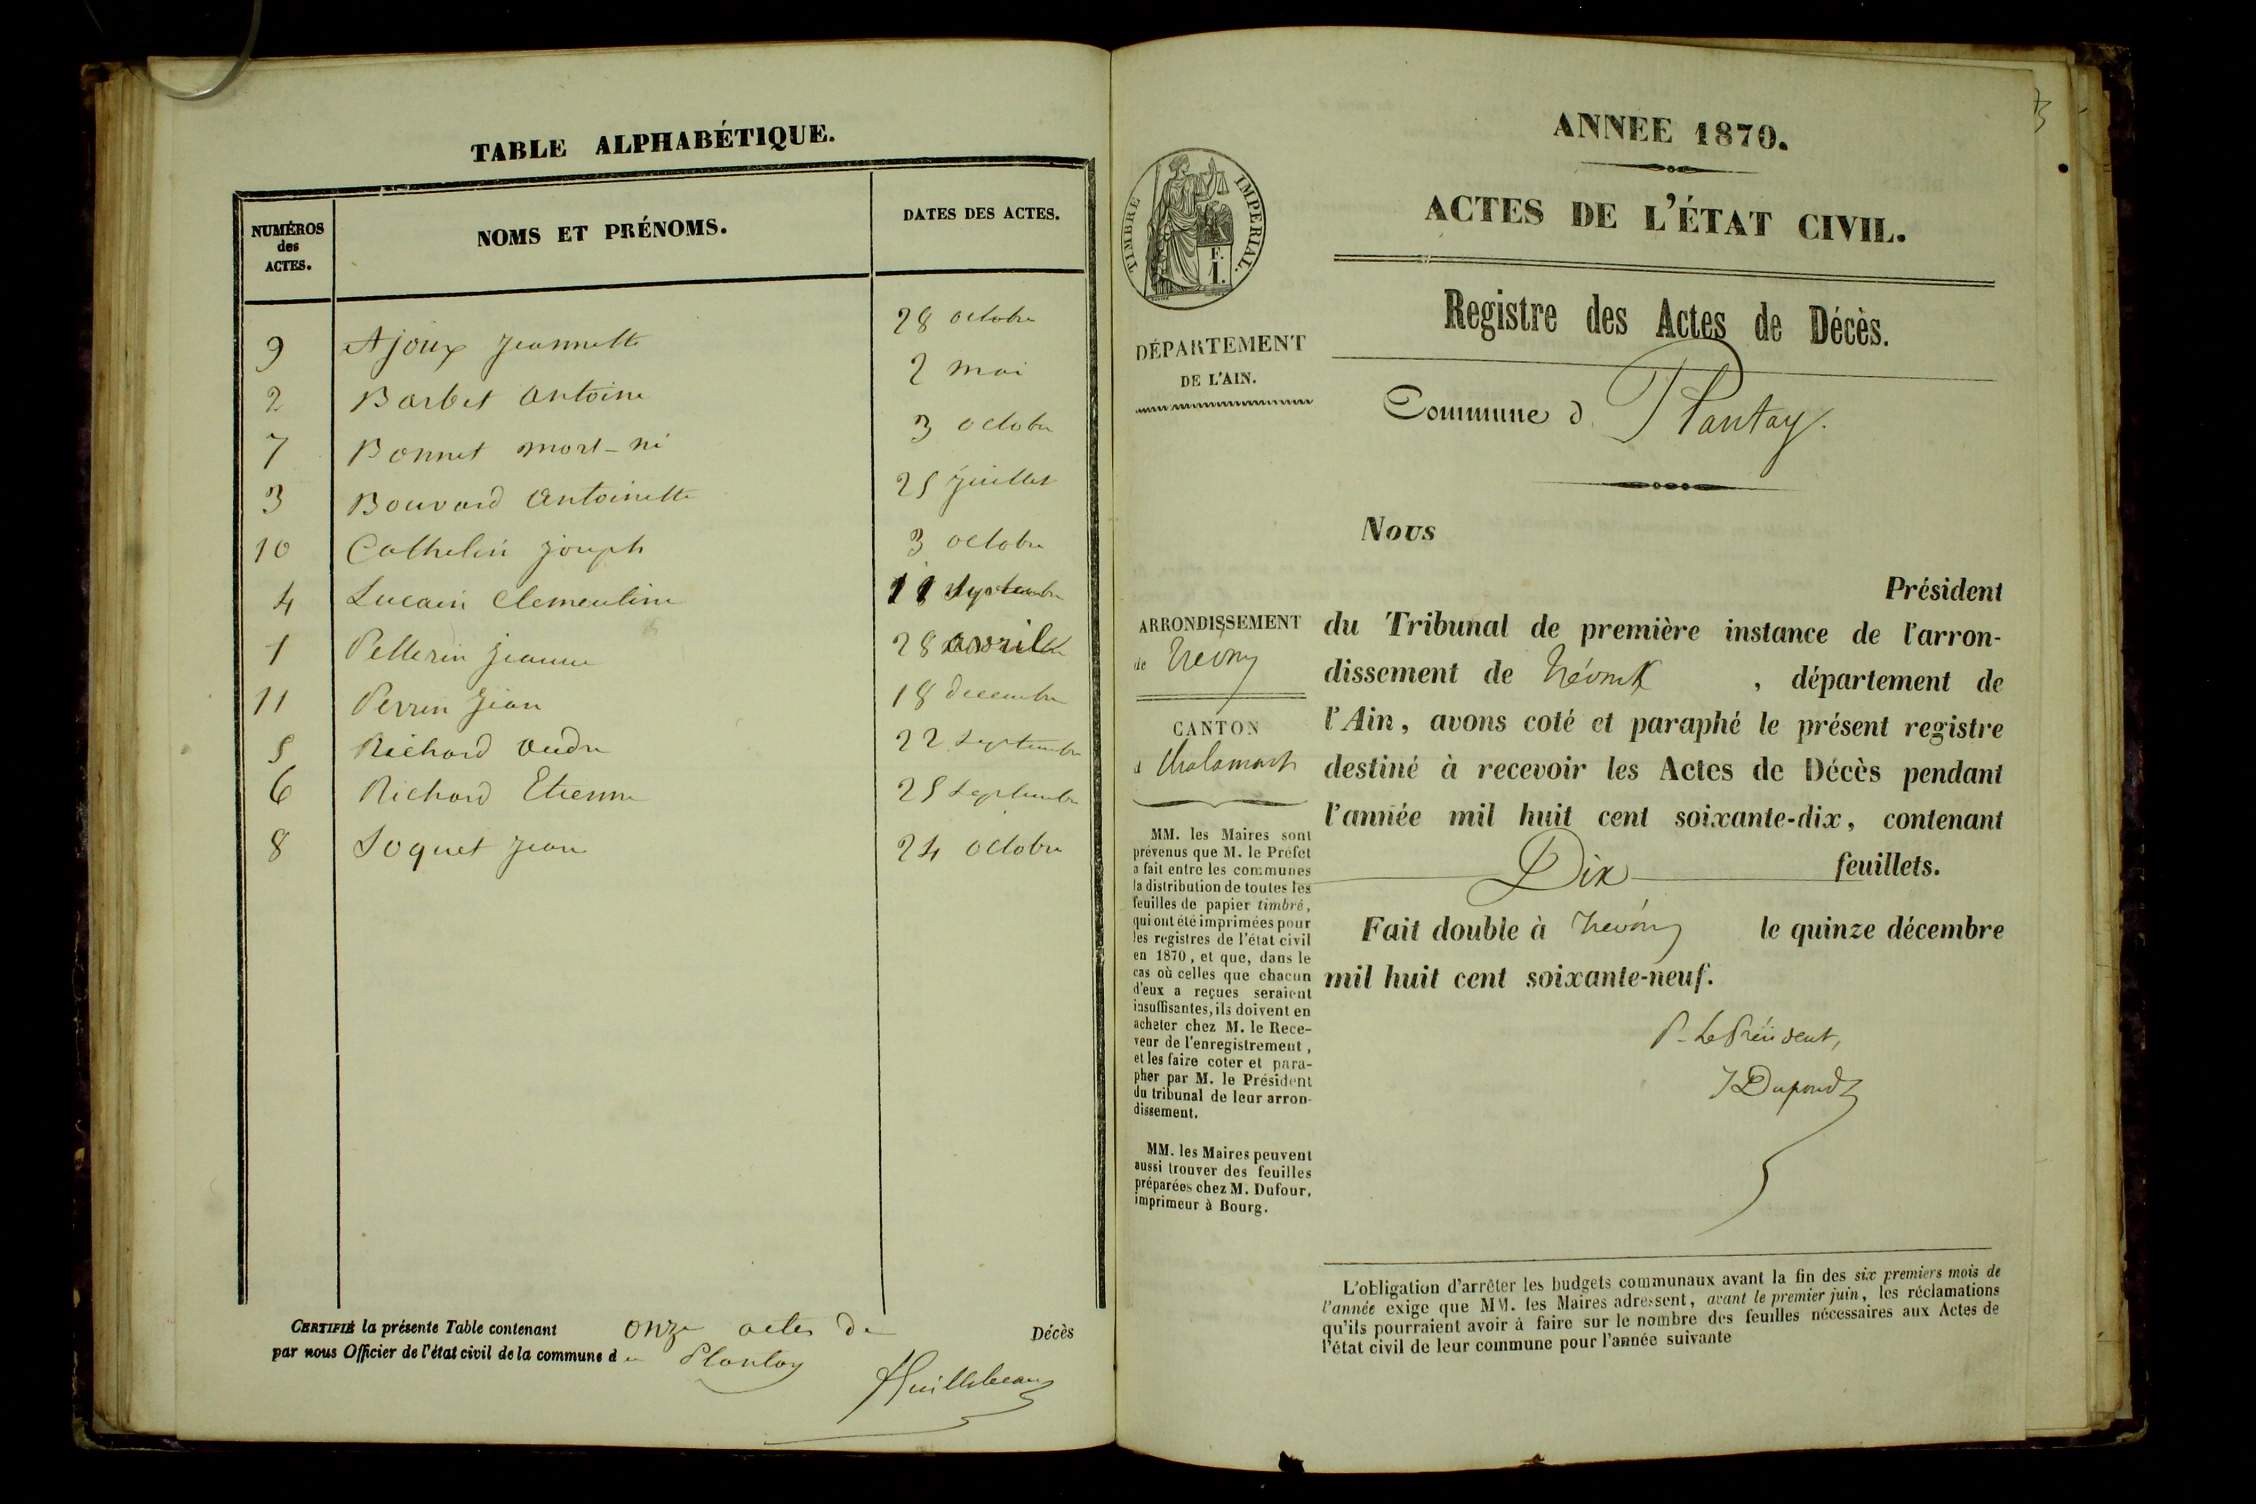 TABLE ALPHABÉTIQUE.
NUMÉROS des ACTES. NOMS ET PRÉNOMS. DATES DES ACTES.
9 Ajoux Jeannette 28 octobre
2 Barbet Antoine 2 mai
7 Bonnet mort-né 3 octobre
3 Bouvard Antoinette 25 juillet
10 Cathelin Joseph 3 octobre
4 Lucain Clementine 11 septembre
1 Pellerin Jeanne 28 avril
11 Perrin Jean 18 decembre
5 Richard 22 septembre
6 Richard Etienne 25 septembre
8 Soquet Jean 24 octobre
CERTIFIÉ la présente Table contenant onze actes de Décès
par nous Officier de l'état civil de la commune du Plantay
ANNÉE 1870.
ACTES DE L'ÉTAT CIVIL.
TIMBRE IMPERIAL.
F.
1.
Registre des Actes de Décès.
DÉPARTEMENT
DE L'AIN.
Commune d Plantay.
ARRONDISSEMENT
de Trévoux
CANTON
d Chalamont
MM. les Maires sont
prévenus que M. le Préfet
a fait entre les communes
la distribution de toutes les
feuilles de papier timbré,
qui ont été imprimées pour
les registres de l'état civil
en 1870, et que, dans le
cas où celles que chacun
d'eux a reçues seraient
insuffisantes, ils doivent en
acheter chez M. le Rece-
veur de l'enregistrement,
et les faire coter et para-
pher par M. le Président
du tribunal de leur arron-
dissement.
MM. les Maires peuvent
aussi trouver des feuilles
préparées chez M. Dufour,
imprimeur à Bourg.
Nous
Président
du Tribunal de première instance de l'arron-
dissement de Trévoux, département de
l'Ain, avons coté et paraphé le présent registre
destiné à recevoir les Actes de Décès pendant
l'année mil huit cent soixante-dix, contenant
Dix feuillets.
Fait double à Trévoux le quinze décembre
mil huit cent soixante-neuf.
P. Le Président,
Dupond
L'obligation d'arrêter les budgets communaux avant la fin des six premiers mois de
l'année exige que MM. les Maires adressent, avant le premier juin, les réclamations
qu'ils pourraient avoir à faire sur le nombre des feuilles nécessaires aux Actes de
l'état civil de leur commune pour l'année suivante